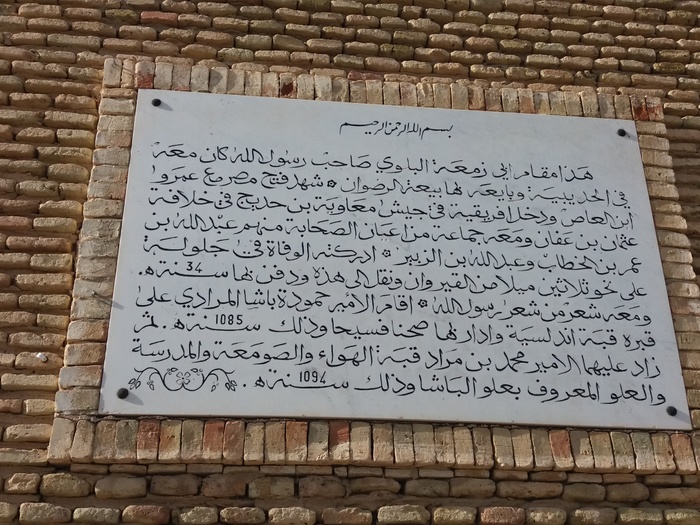 بسم الله الرحمن الرحيم
هذا مقام ابي زمعة البلوي صاحب رسول الله كان معه
في الحديبية وبايعه بها بيعة الرضوان * شهد فتح مصر مع عمرو
ابن العاص ودخل افريقية في جيش معاوية بن حديج في خلافة
عثمان بن عفان ومعه جماعة من اعيان الصحابة منهم عبد الله بن
عمر بن الخطاب وعبد الله بن الزبير * ادركته الوفاة في جلولة
على نحو ثلاثين ميلا من القيروان ونقل الى هذه ودفن بها سنة 34 ه.
ومعه شعر من شعر رسول الله * اقام الامير حمودة باشا المرادي على
قبره قبة اندلسية وادار بها صحنا فسيحا وذلك سنة 1085 ه. ثم
زاد عليها الامير محمد بن مراد قبة الهواء والصومعة والمدرسة
والعلو المعروف بعلو الباشا وذلك سنة 1094 ه.